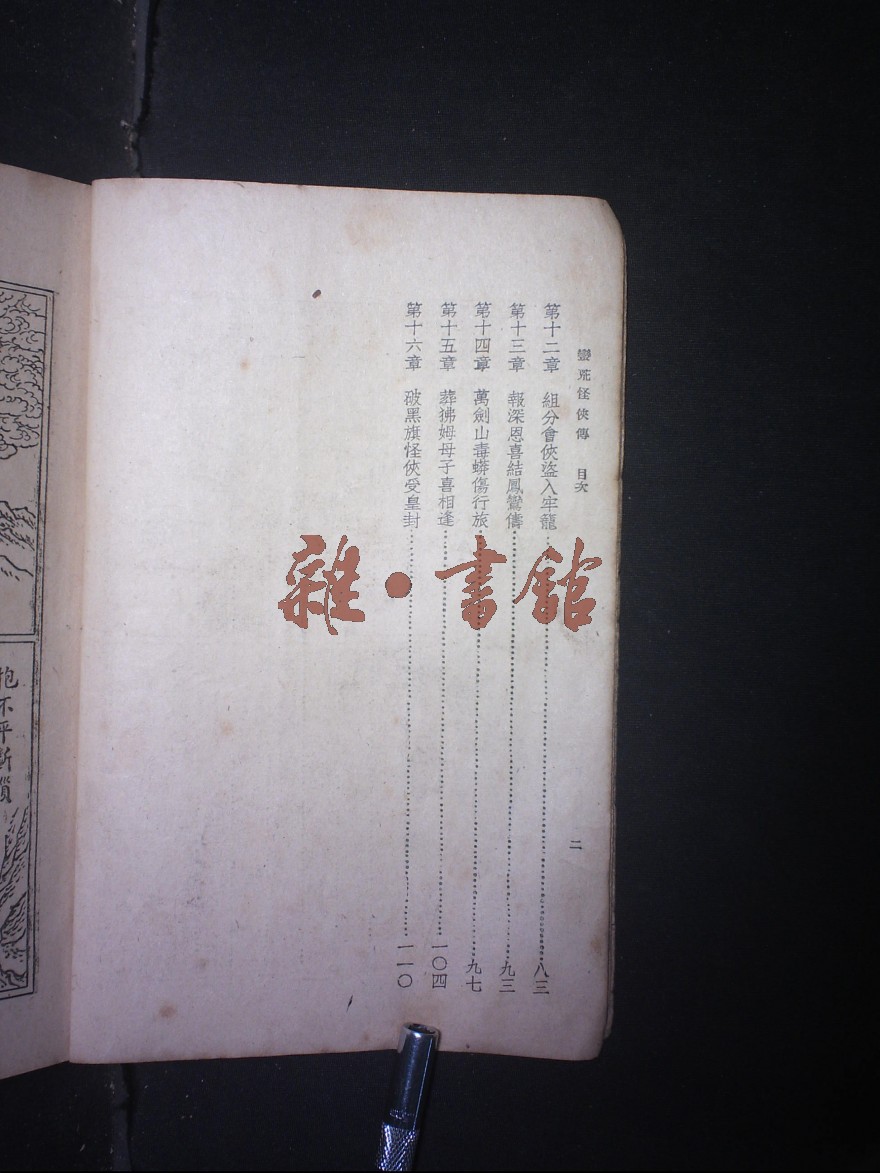 蠻荒怪俠傳 目次 二
第十二章 組分會俠盜入牢籠 八三
第十三章 報深恩喜結鳳鸞儔 九三
第十四章 萬劍山毒蟒傷行旅 九七
第十五章 葬狒姆母子喜相逢 一〇四
第十六章 破黑旗怪俠受皇封 一一〇
雜·書館
抱不平斷